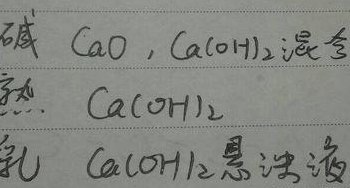 碱 CaO,Ca(OH)₂混合
熟 Ca(OH)₂
乳 Ca(OH)₂悬浊液